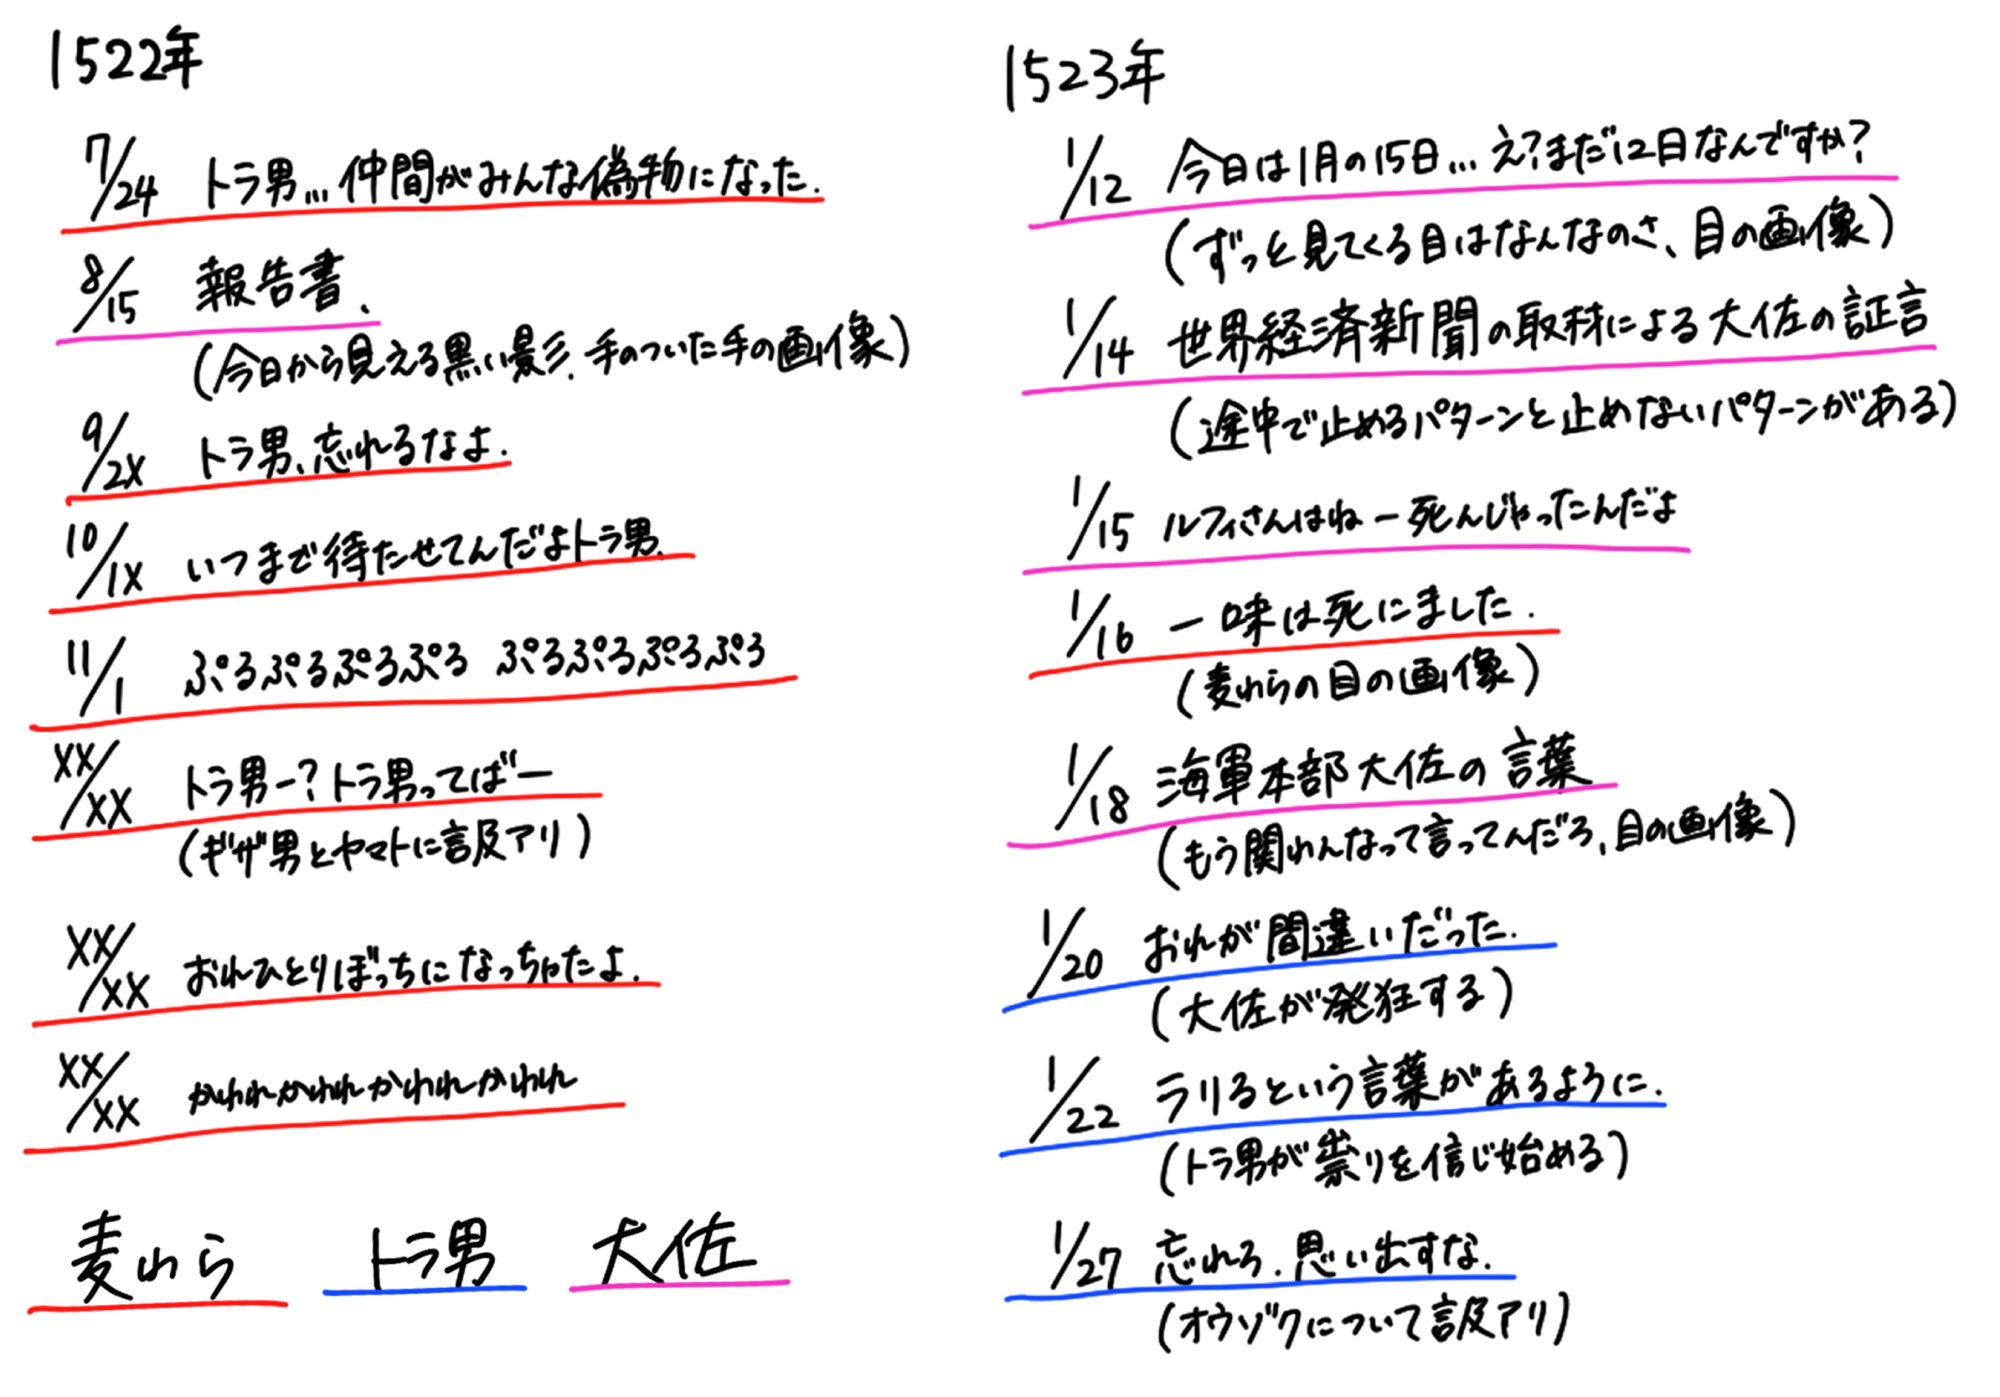 1522年
7/24 トラ男...仲間がみんな偽物になった.
8/15 報告書、
(今日から見える黒い影、手のついた手の画像)
9/2X トラ男、忘れるなよ.
10/1X いつまで待たせてんだよトラ男、
11/1 ぷるぷるぷるぷる ぷるぷるぷるぷる
XX/XX トラ男ー?トラ男ってばー
(ギザ男とヤマトに言及アリ)
XX/XX おれひとりぼっちになっちゃたよ.
XX/XX かわれかわれかわれかわれ
麦わら トラ男 大佐
1523年
1/12 今日は1月の15日...え?まだ12日なんですか?
(ずっと見てくる目はなんなのさ、目の画像)
1/14 世界経済新聞の取材による大佐の証言
(途中で止めるパターンと止めないパターンがある)
1/15 ルフィさんはねー死んじゃったんだよ
1/16 一味は死にました.
(麦わらの目の画像)
1/18 海軍本部大佐の言葉
(もう関わんなって言ってんだろ、目の画像)
1/20 おれが間違いだった.
(大佐が発狂する)
1/22 ラリるという言葉があるように.
(トラ男が祟りを信じ始める)
1/27 忘れろ.思い出すな.
(オウゾクについて言及アリ)